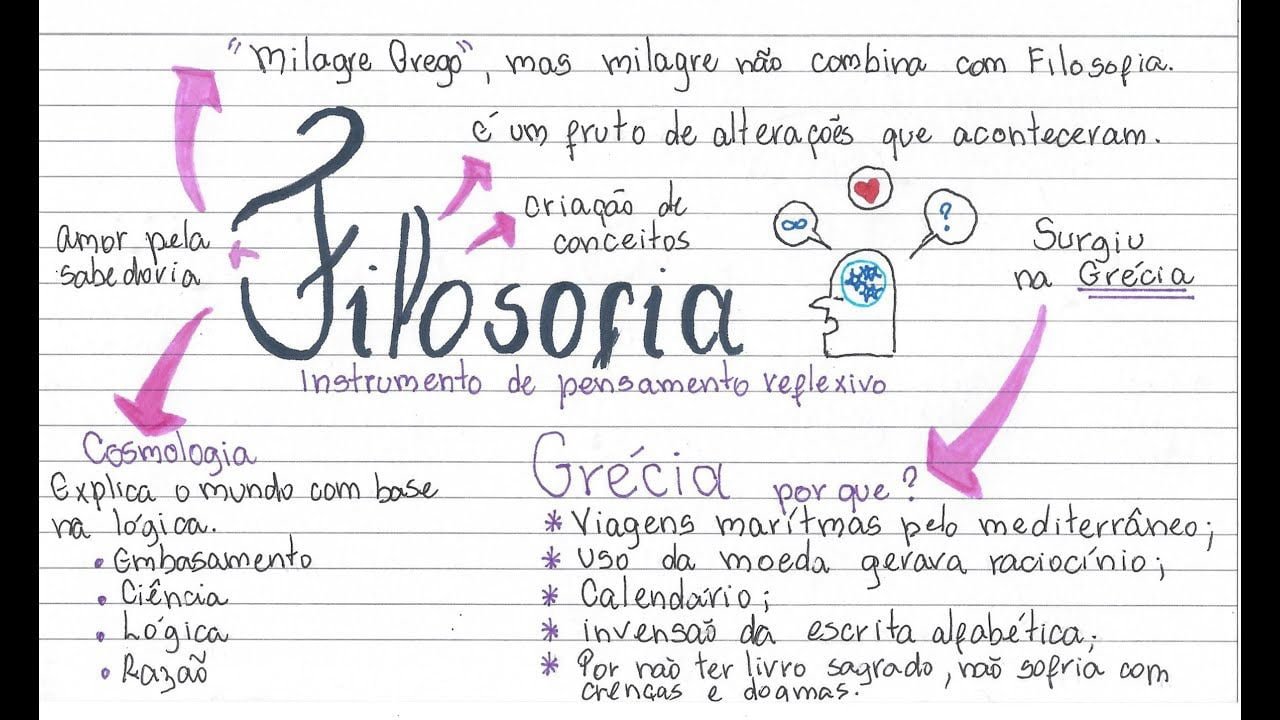 "Milagre Grego", mas milagre não combina com Filosofia.
é um fruto de alterações que aconteceram.
criação de
conceitos
amor pela
sabedoria
Filosofia
Surgiu
na Grécia
∞
?
Instrumento de pensamento reflexivo
Cosmologia
Explica o mundo com base
na lógica.
• Embasamento
• Ciência
• Lógica
• Razão
Grécia por que?
* Viagens marítmas pelo mediterrâneo;
* Uso da moeda gerava raciocínio;
* Calendário;
* invensão da escrita alfabética;
* Por não ter livro sagrado, não sofria com
crenças e dogmas.